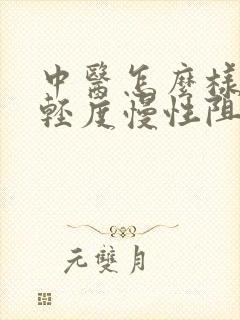 中醫怎麼樣
輕度慢性阻
元雙月